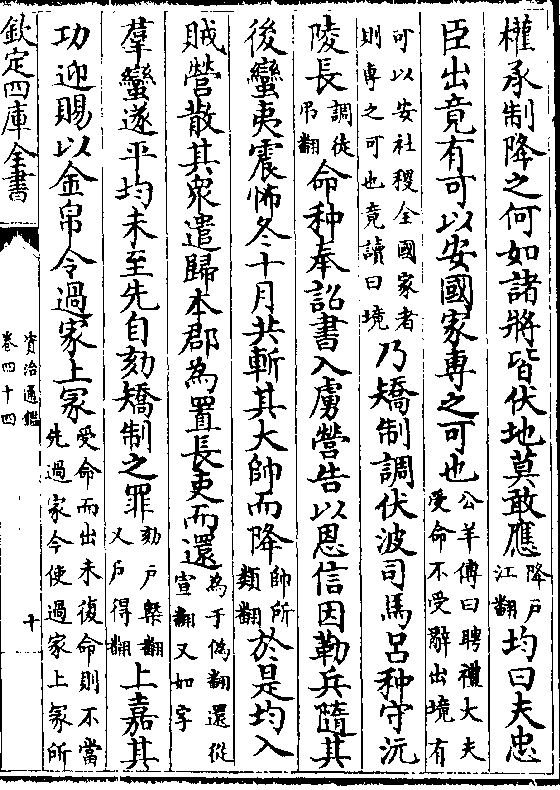 權承制降之何如諸將皆伏地莫敢應降戶江翻均曰夫忠
臣出竟有可以安國家專之可也公羊傳曰聘禮大夫受命不受辭出境有
可以安社稷全國家者則專之可也竟讀曰境乃矯制調伏波司馬呂种守沅
陵長調徒弔翻命种奉詔書入虜營告以恩信因勒兵隨其
後蠻夷震怖冬十月共斬其大帥而降帥所類翻於是均入
賊營散其衆遣歸本郡為置長吏而還為于偽翻還從宣翻又如字
羣蠻遂平均未至先自劾矯制之罪劾戶槩翻又戶得翻上嘉其
功迎賜以金帛令過家上冢受命而出未復命則不當先過家今使過家上冢所
欽定四庫全書
資治通鑑
卷四十四
十